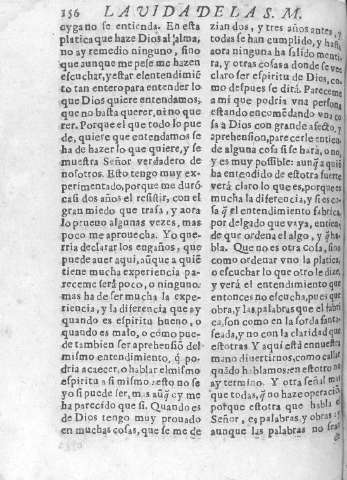 156 LA VIDA DE LA S. M.
oygano se entienda. En esta
platica que haze Dios al alma,
no ay remedio ninguno, sino
que aunque me pese me hazen
escuchar, y estar el entendimiẽ
to tan entero para entender lo
que Dios quiere entendamos,
que no basta querer, ni no que
rer. Porque el que todo lo pue
de, quiere que entendamos se
ha de hazer lo que quiere, y se
muestra Señor verdadero de
nosotros. Esto tengo muy ex-
perimentado, porque me duró
casi dos años el resistir, con el
gran miedo que traia, y aora
lo prueuo algunas vezes, mas
poco me aprouecha. Yo que-
ria declarar los engaños, que
puede auer aqui, aũque a quiẽ
tiene mucha experiencia pa-
receme será poco, o ninguno:
mas ha de ser mucha la expe-
riencia, y la diferencia que ay
quando es espiritu bueno, o
quando es malo, o como pue-
de tambien ser aprehensiõ del
mismo entendimiento, q̃ po-
dria acaecer, o hablar el mismo
espiritu a si mismo: esto no se
yo si puede ser, mas aũq̃ oy me
ha parecido que si. Quando es
de Dios tengo muy prouado
en muchas cosas, que se me de
zian dos, y tres años antes, y
todas se han cumplido, y hasta
aora ninguna ha salido menti-
ra, y otras cosas a donde se vee
claro ser espiritu de Dios, co-
mo despues se dirá. Pareceme
a mi que podria vna persona
estando encomẽdando vna co
sa a Dios con grande afecto, y
aprehension, parecerle entien-
de alguna cosa si se hará, o no,
y es muy possible: aunq̃ a quiẽ
ha entendido de estotra suerte
verá claro lo que es, porque es
mucha la diferencia, y si es co-
sa q̃ el entendimiento fabrica,
por delgado que vaya, entien-
de que ordena el algo, y q̃ ha-
bla. Que no es otra cosa, sino
como ordenar vno la platica,
o escuchar lo que otro le dize,
y verá el entendimiento que
entonces no escucha, pues que
obra, y las palabras que el fabri
ca, son como en cosa sorda fanta-
seada, y no con la claridad que
estotras. Y aqui está en nuestra
mano diuertirnos, como callar
quãdo hablamos: en estotro no
ay termino. Y otra señal mas
que todas, q̃ no haze operaciõ
porque estotra que habla el
Señor, es palabras, y obras: y
aunque las palabras no sean